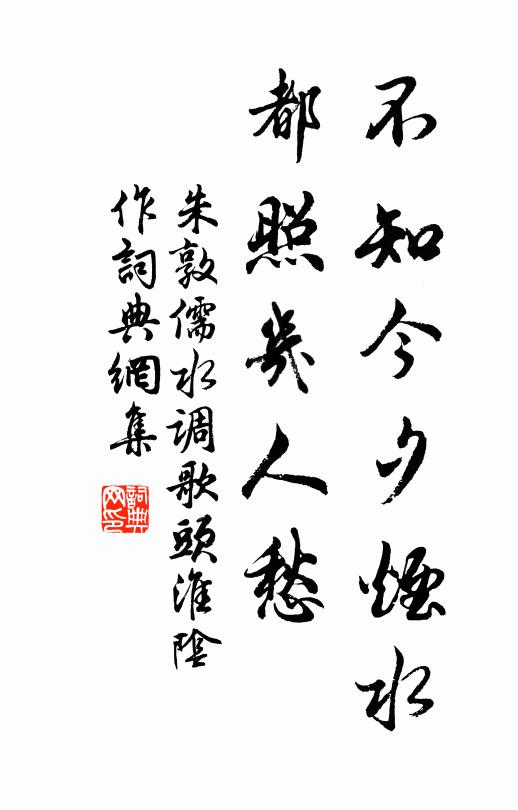 不知今夕煙水
都照幾人愁
朱敦儒水調歌頭淮陰
作詞典網集
詞典网印